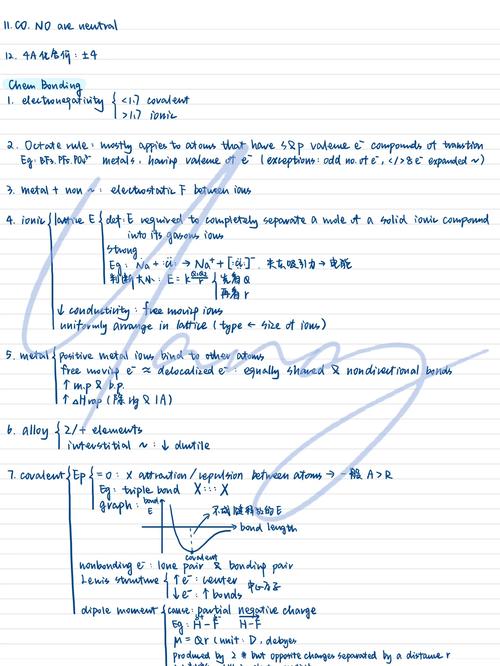 11. CO. NO are neutral
12. 4A化合价: ±4
Chem Bonding
1. electronegativity { <1.7 covalent
>1.7 ionic
2. Octate rule: mostly appies to atoms that have s&p valeme e⁻ compounds of transtion
Eg: BF₃. PF₅. PO₄³⁻ metals. having valeme d e⁻ (exceptions: odd no. of e⁻, </>8 e⁻ expanded ~)
3. metal + non ~: electrostatic F between ions
4. ionic { lattice E { def: E required to completely separate a mole of a solid ionic compound
into its gasous ions
strong
Eg: Na + ·Cl: → Na⁺ + [:Cl:]⁻
判断大小: E = k Q₁Q₂/r { 先看Q
再看r
↓ conductivity: free moving ions
uniformly arrange in lattice (type ← size of ions)
5. metal { positive metal ions bind to other atoms
free moving e⁻ ≈ delocalized e⁻: equally shared & nondirectional bonds
↑ m.p & b.p.
↑ ΔHvap (除 Mg & 1A)
6. alloy { 2/+ elements
interstitial ~: ↓ ductile
7. covalent { Ep { = 0: X attraction/repulsion between atoms → 一般 A>R
Eg: triple bond X:::X
graph: bond
E
bond length
covalent
nonbonding e⁻: lone pair & bonding pair
Lewis structure { ↑ e⁻: center
↓ e⁻: ↑ bonds
dipole moment { cause: partial negative charge
Eg: H–F H–F
μ = Qr (unit: D, debyes
produced by 2 但 opposite charges separated by a distance r
Yang